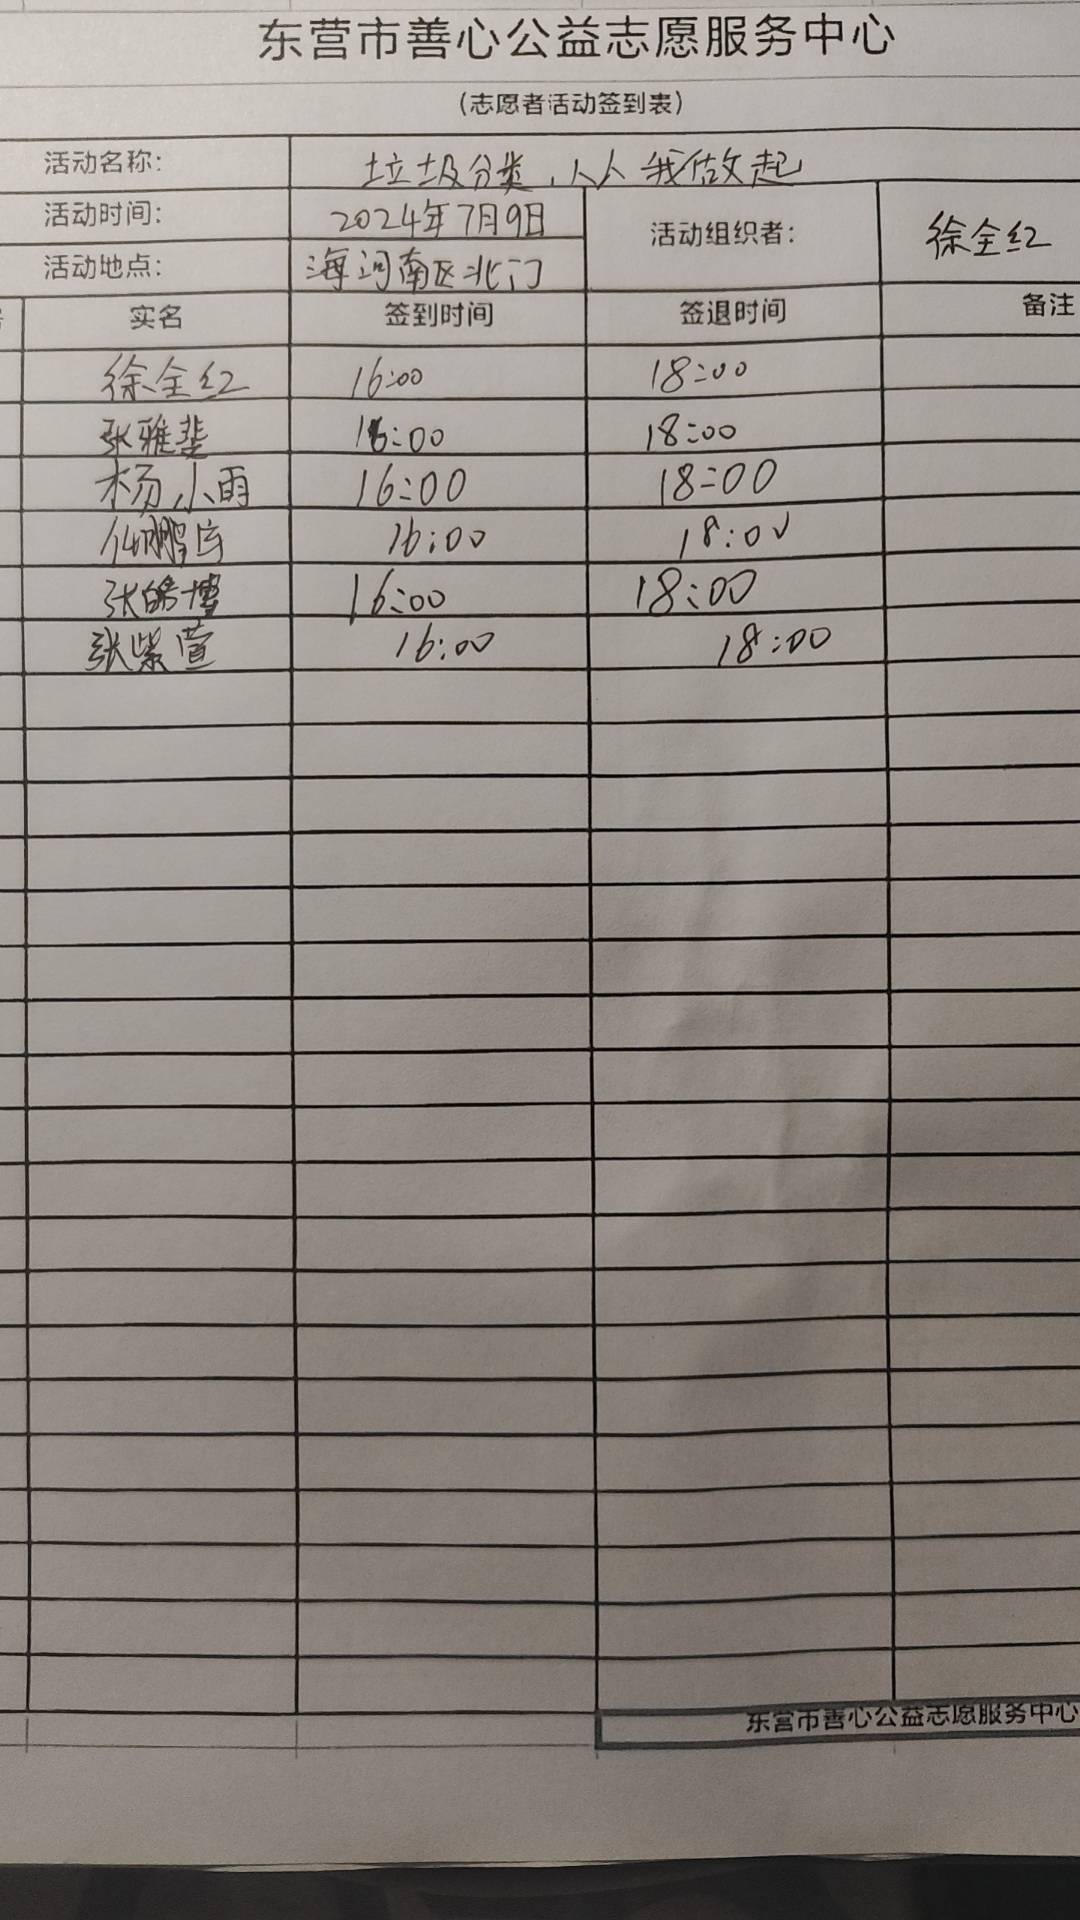 东营市善心公益志愿服务中心
(志愿者活动签到表)
活动名称: 垃圾分类，从我做起
活动时间: 2024年7月9日 活动组织者: 徐全红
活动地点: 海河南区北门
实名 签到时间 签退时间 备注
徐全红 16:00 18:00
张雅斐 16:00 18:00
杨小雨 16:00 18:00
16:00 18:00
张皓博 16:00 18:00
张紫萱 16:00 18:00
东营市善心公益志愿服务中心